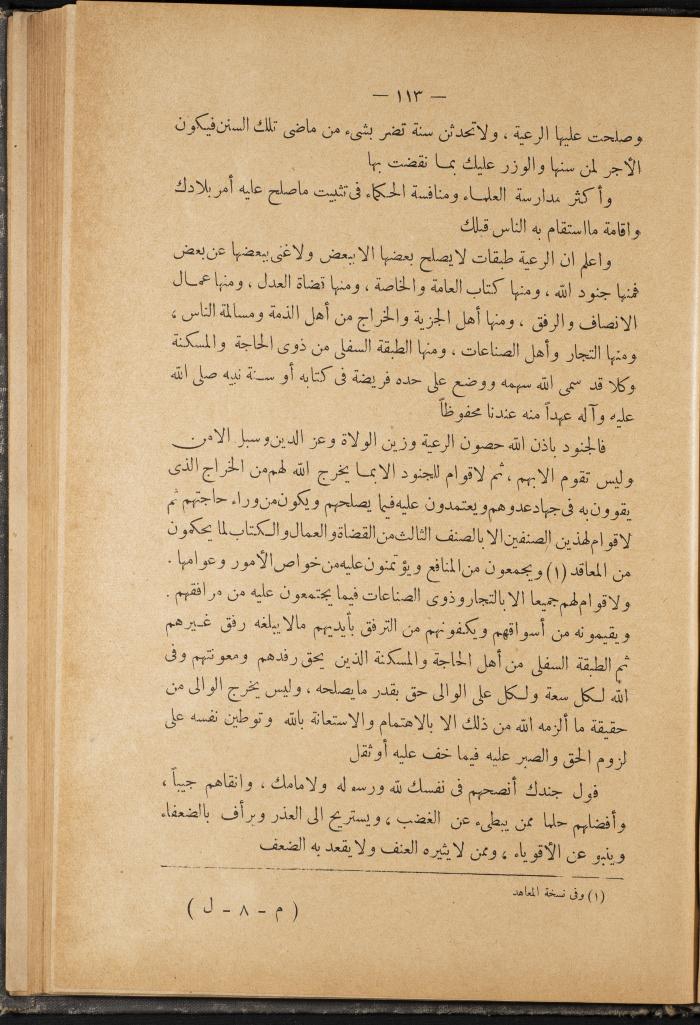 — ١١٣ —
وصلحت عليها الرعية ، ولاتحدثن سنة تضر بشىء من ماضى تلك السنن فيكون
الأجر لمن سنها والوزر عليك بما نقضت بها
وأكثر مدارسة العلماء ومنافسة الحكماء فى تثبيت ماصلح عليه أمر بلادك
واقامة مااستقام به الناس قبلك
واعلم ان الرعية طبقات لايصلح بعضها الا ببعض ولاغنى ببعضها عن بعض
فمنها جنود الله ، ومنها كتاب العامة والخاصة ، ومنها قضاة العدل ، ومنها عمال
الانصاف والرفق ، ومنها أهل الجزية والخراج من أهل الذمة ومسالمة الناس ،
ومنها التجار وأهل الصناعات ، ومنها الطبقة السفلى من ذوى الحاجة والمسكنة
وكلا قد سمى الله سهمه ووضع على حده فريضة فى كتابه أو سنة نبيه صلى الله
عليه وآله عهداً منه عندنا محفوظاً
فالجنود باذن الله حصون الرعية وزين الولاة وعز الدين وسبل الامن
وليس تقوم الابهم ، ثم لاقوام للجنود الابما يخرج الله لهم من الخراج الذى
يقوون به فى جهاد عدوهم ويعتمدون عليه فيما يصلحهم ويكون من وراء حاجتهم ثم
لاقوام لهذين الصنفين الا بالصنف الثالث من القضاة والعمال والكتاب لما يحكمون
من المعاقد (١) ويجمعون من المنافع ويؤتمنون عليه من خواص الأمور وعوامها .
ولاقوام لهم جميعا الا بالتجار وذوى الصناعات فيما يجتمعون عليه من مرافقهم .
ويقيمونه من أسواقهم ويكفونهم من الترفق بأيديهم مالايبلغه رفق غيرهم
ثم الطبقة السفلى من أهل الحاجة والمسكنة الذين يحق رفدهم ومعونتهم وفى
الله لكل سعة ولكل على الوالى حق بقدر مايصلحه ، وليس يخرج الوالى من
حقيقة ما ألزمه الله من ذلك الا بالاهتمام والاستعانة بالله وتوطين نفسه على
لزوم الحق والصبر عليه فيما خف عليه أو ثقل
فول جندك أنصحهم فى نفسك لله ورسوله ولامامك ، وانقاهم جيباً ،
وأفضلهم حلما ممن يبطىء عن الغضب ، ويستريح الى العذر ويرأف بالضعفاء
وينبو عن الأقوياء ، وممن لايثيره العنف ولايقعد به الضعف
(١) وفى نسخة المعاهد
( م - ٨ - ل )